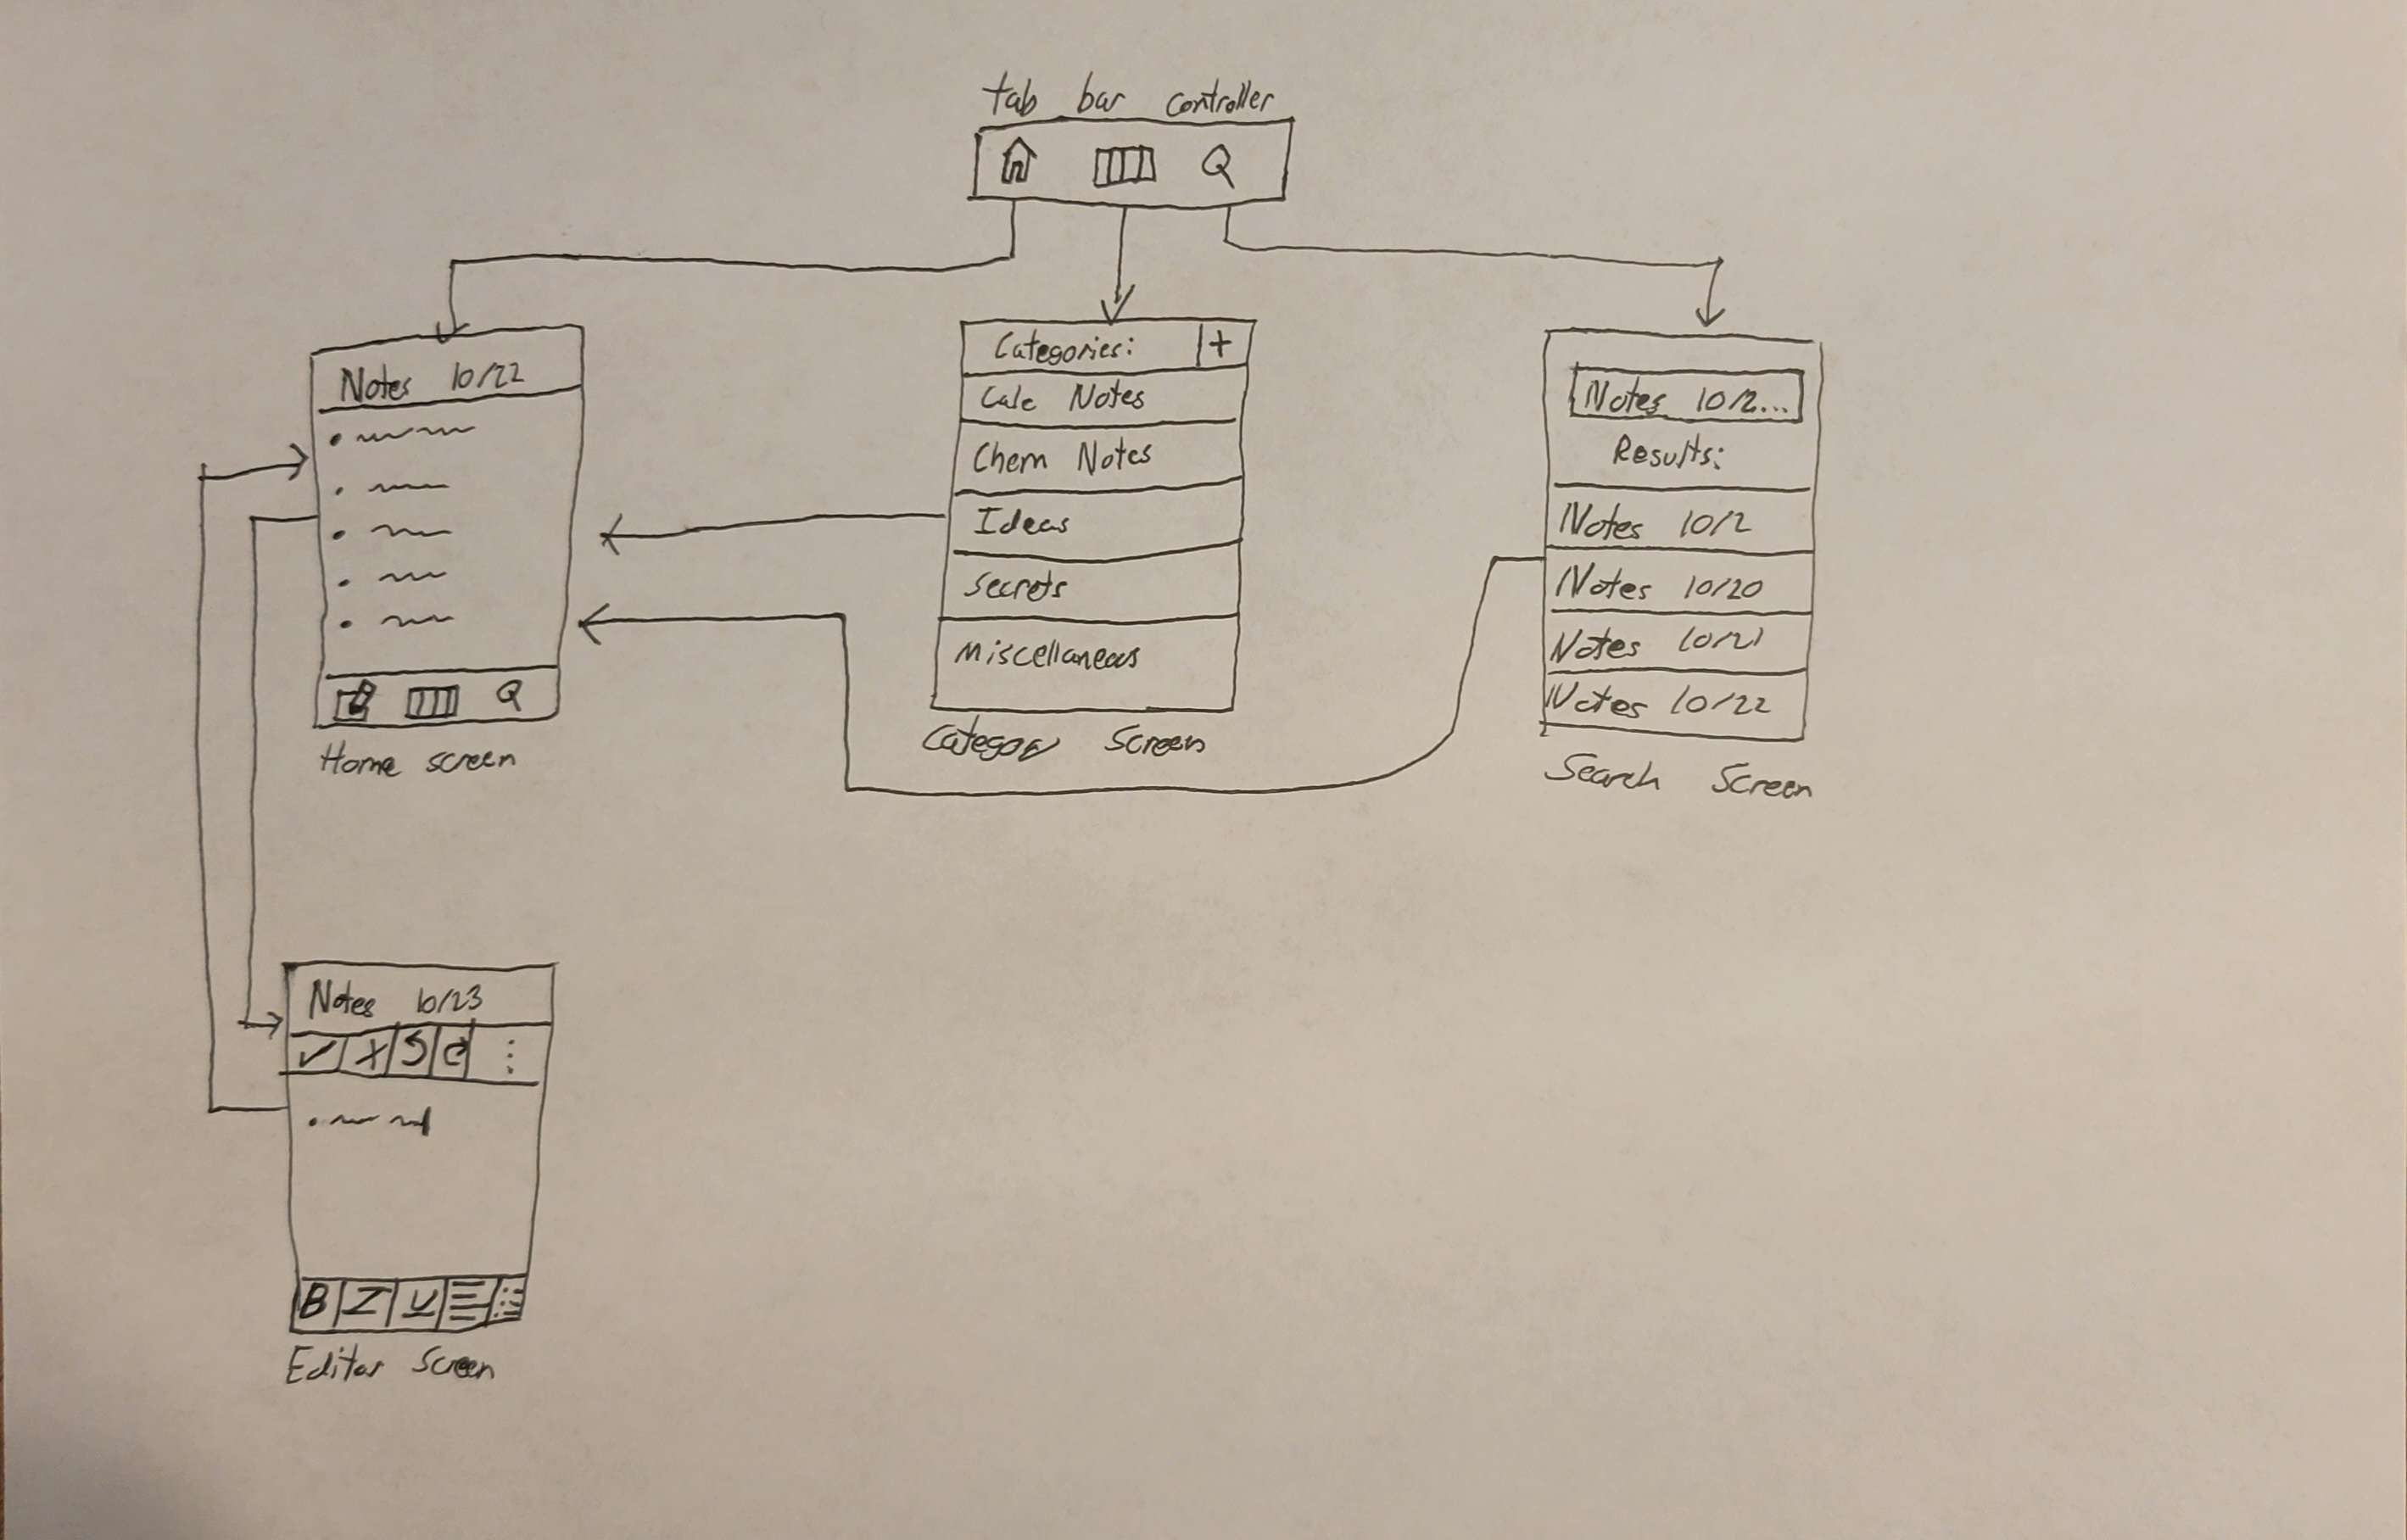 tab bar controller
Notes 10/22
Home screen
Categories: +
Calc Notes
Chem Notes
Ideas
Secrets
Miscellaneous
Category Screen
Notes 10/2...
Results:
Notes 10/2
Notes 10/20
Notes 10/21
Notes 10/22
Search Screen
Notes 10/23
B I U
Editor Screen